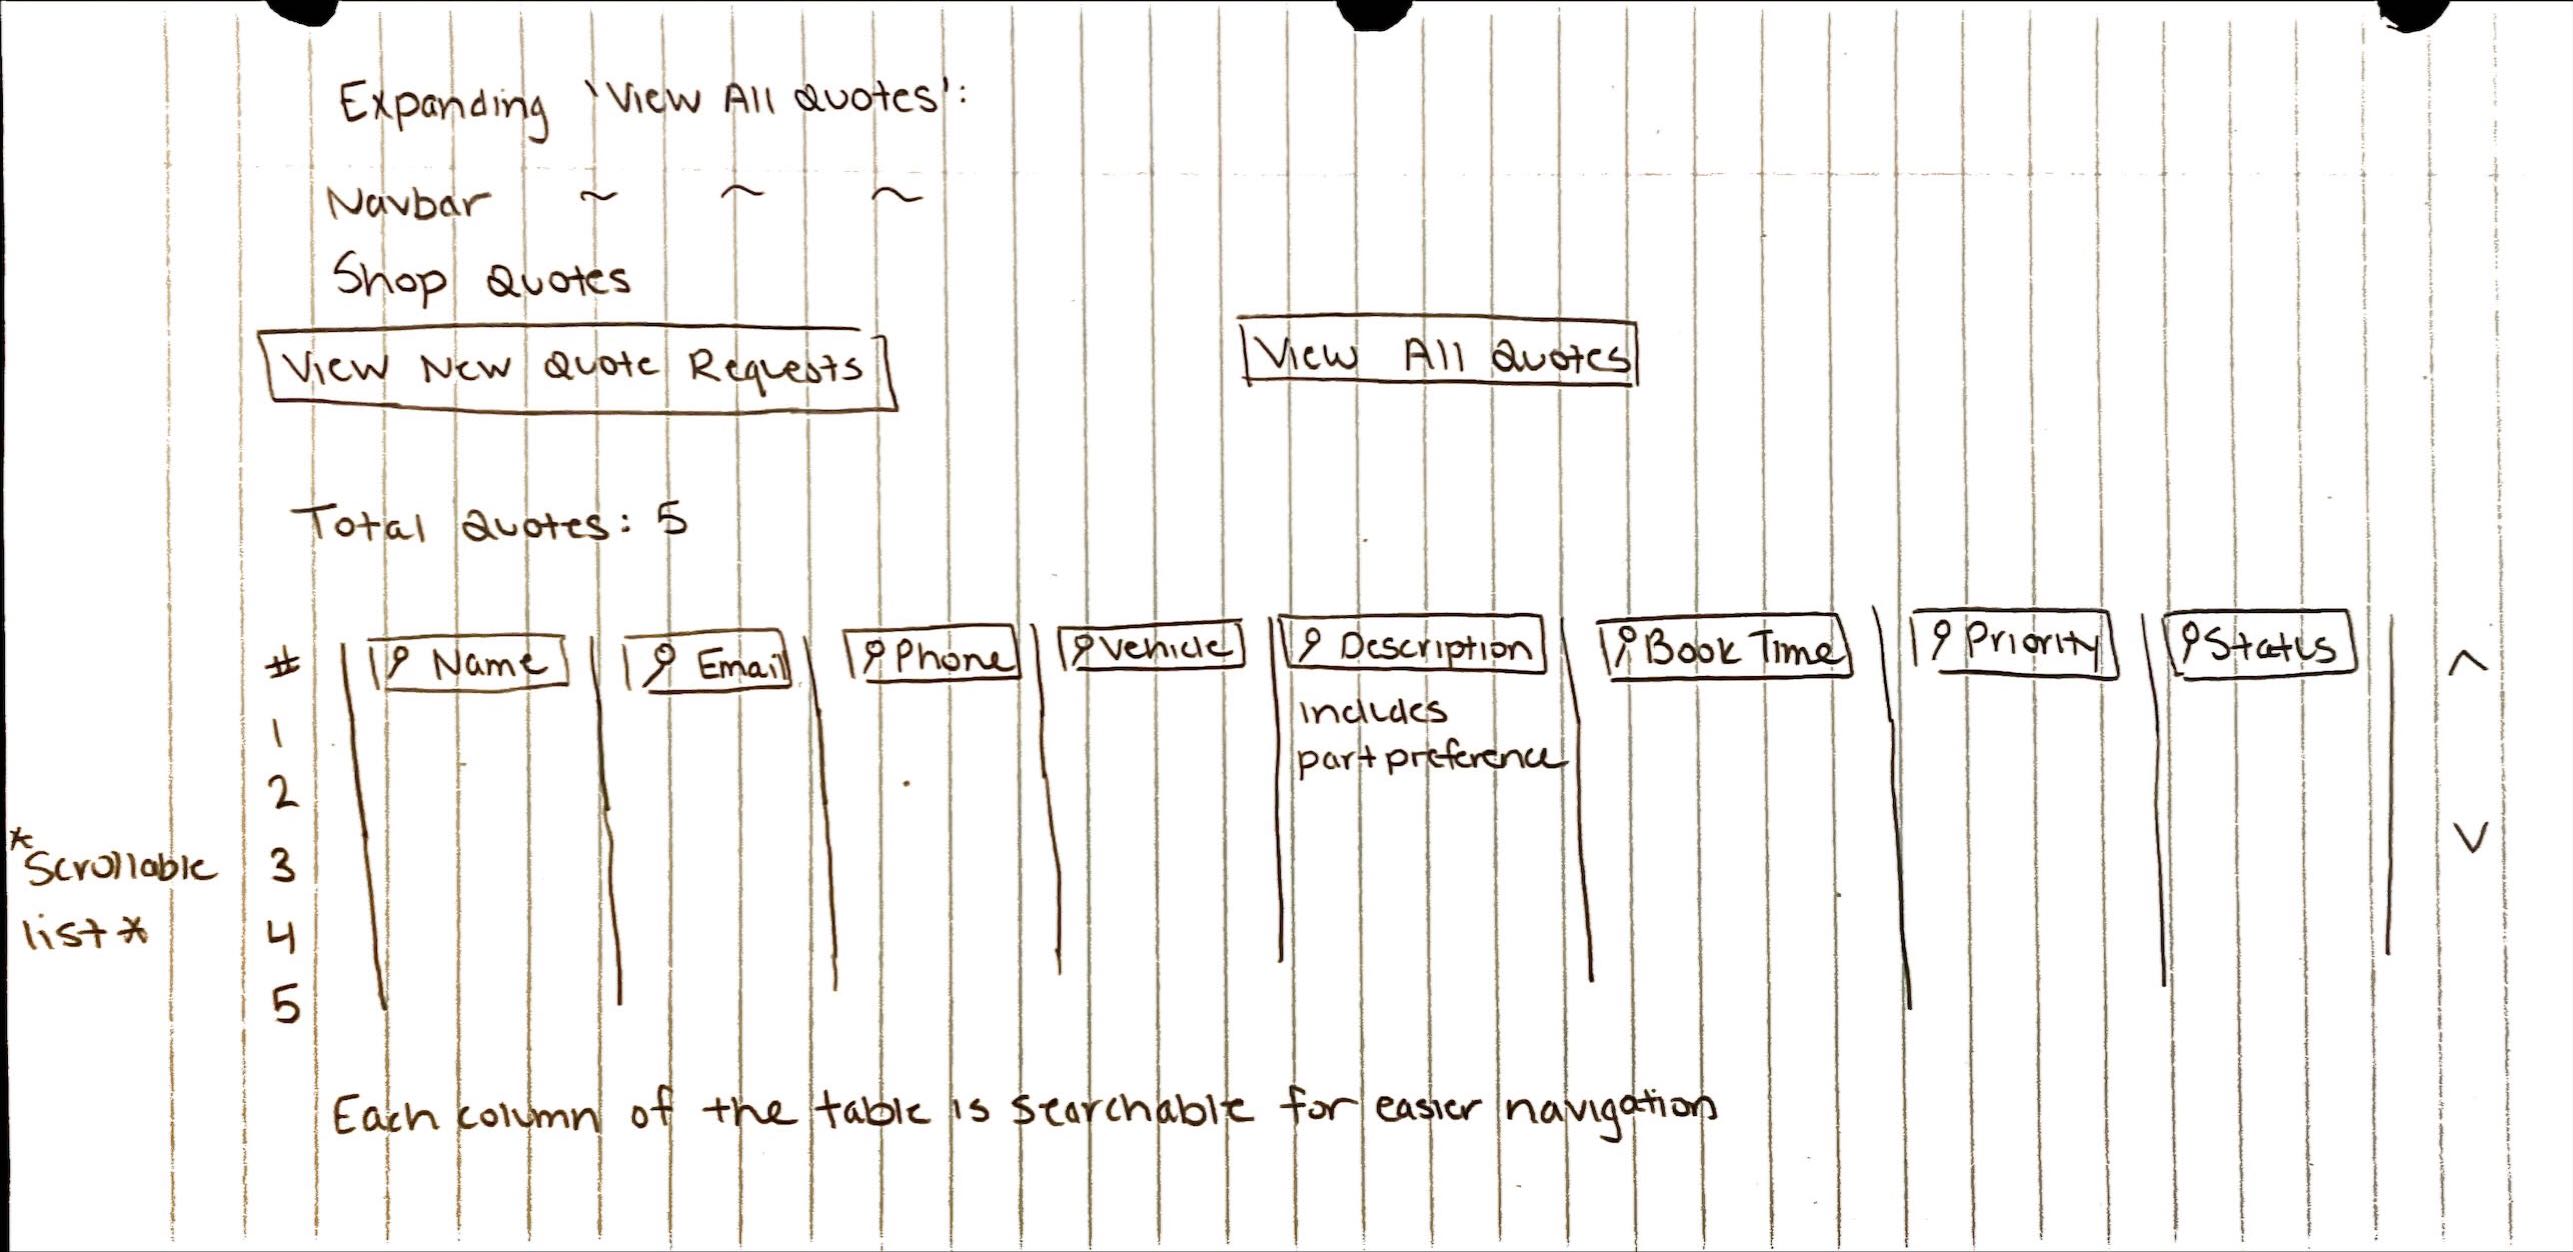 Expanding 'View All Quotes':
Navbar ~ ~ ~
Shop Quotes
View New Quote Requests View All Quotes
Total Quotes: 5
# Name Email Phone Vehicle Description Book Time Priority Status ^
includes
1
part preference
2
*Scrollable 3 v
list* 4
5
Each column of the table is searchable for easier navigation